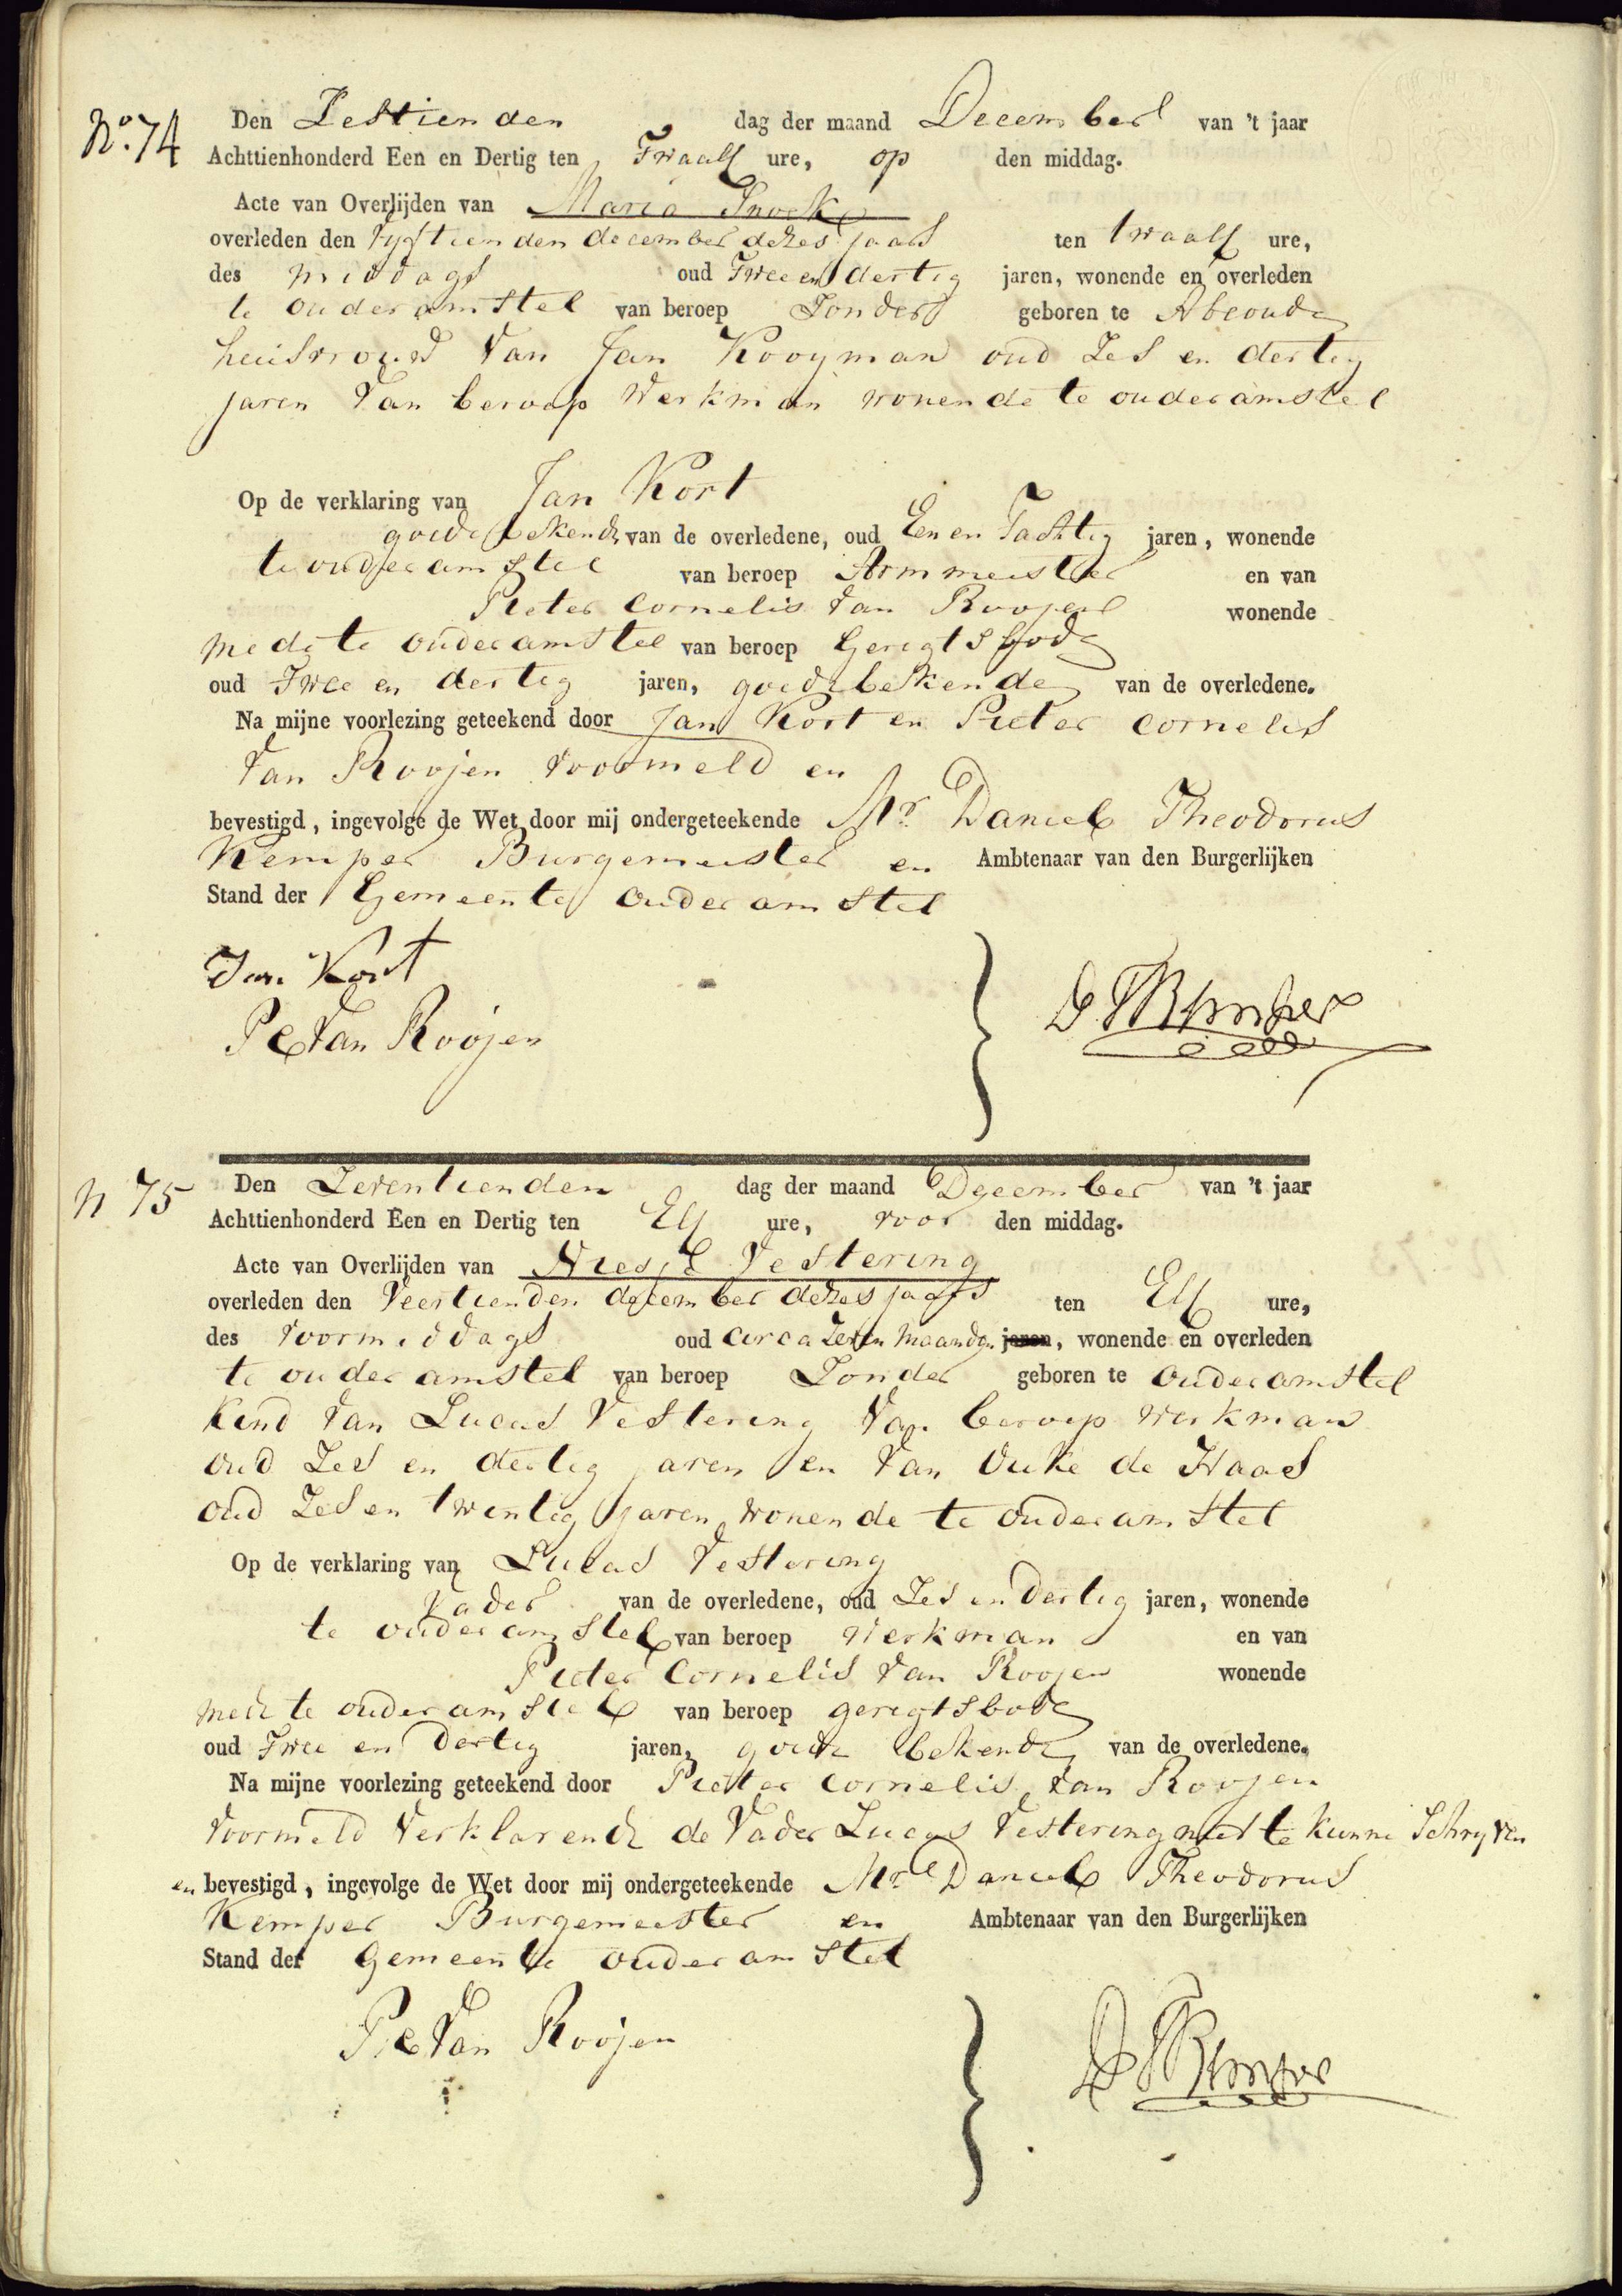 No. 74 Den Zestienden dag der maand December van 't jaar
Achttienhonderd Een en Dertig ten Twaalf ure, op den middag.
Acte van Overlijden van Maria Snoek
overleden den Vyftienden december dezes jaars ten twaalf ure,
des middags oud Twee en dertig jaren, wonende en overleden
te ouderamstel van beroep Zonder geboren te Abcoude
huisvrouw van Jan Kooyman oud Zes en dertig
jaren van beroep Werkman wonende te ouderamstel
Op de verklaring van Jan Kort
goede bekende van de overledene, oud Een en Tachtig jaren, wonende
te ouderamstel van beroep Armmeester en van
Pieter Cornelis van Roojen wonende
mede te ouderamstel van beroep Geregtsbode
oud Twee en dertig jaren, goede bekende van de overledene.
Na mijne voorlezing geteekend door Jan Kort en Pieter Cornelis
van Roojen voormeld en
bevestigd, ingevolge de Wet door mij ondergeteekende Mr Daniel Theodorus
Kemper Burgemeester en Ambtenaar van den Burgerlijken
Stand der Gemeente ouderamstel
Jan Kort
PC van Roojen
D T Kemper
N 75 Den Zeventienden dag der maand December van 't jaar
Achttienhonderd Een en Dertig ten Elf ure, voor den middag.
Acte van Overlijden van Niesje Vestering
overleden den Veertienden december dezes jaars ten Elf ure,
des voormiddags oud circa Zeven maanden jaren, wonende en overleden
te ouderamstel van beroep Zonder geboren te ouderamstel
Kind van Lucas Vestering van beroep werkman
oud Zes en dertig jaren en van de Haas
oud Zes en twintig jaren wonende te ouderamstel
Op de verklaring van Lucas Vestering
Vader van de overledene, oud Zes en Dertig jaren, wonende
te ouderamstel van beroep Werkman en van
Pieter Cornelis van Roojen wonende
mede te ouderamstel van beroep geregtsbode
oud Twee en Dertig jaren, goede bekende van de overledene.
Na mijne voorlezing geteekend door Pieter Cornelis van Roojen
voormeld Verklarende de Vader Lucas Vestering niet te kunne Schryven
en bevestigd, ingevolge de Wet door mij ondergeteekende Mr Daniel Theodorus
Kemper Burgemeester en Ambtenaar van den Burgerlijken
Stand der Gemeente ouderamstel
PC van Roojen
D T Kemper